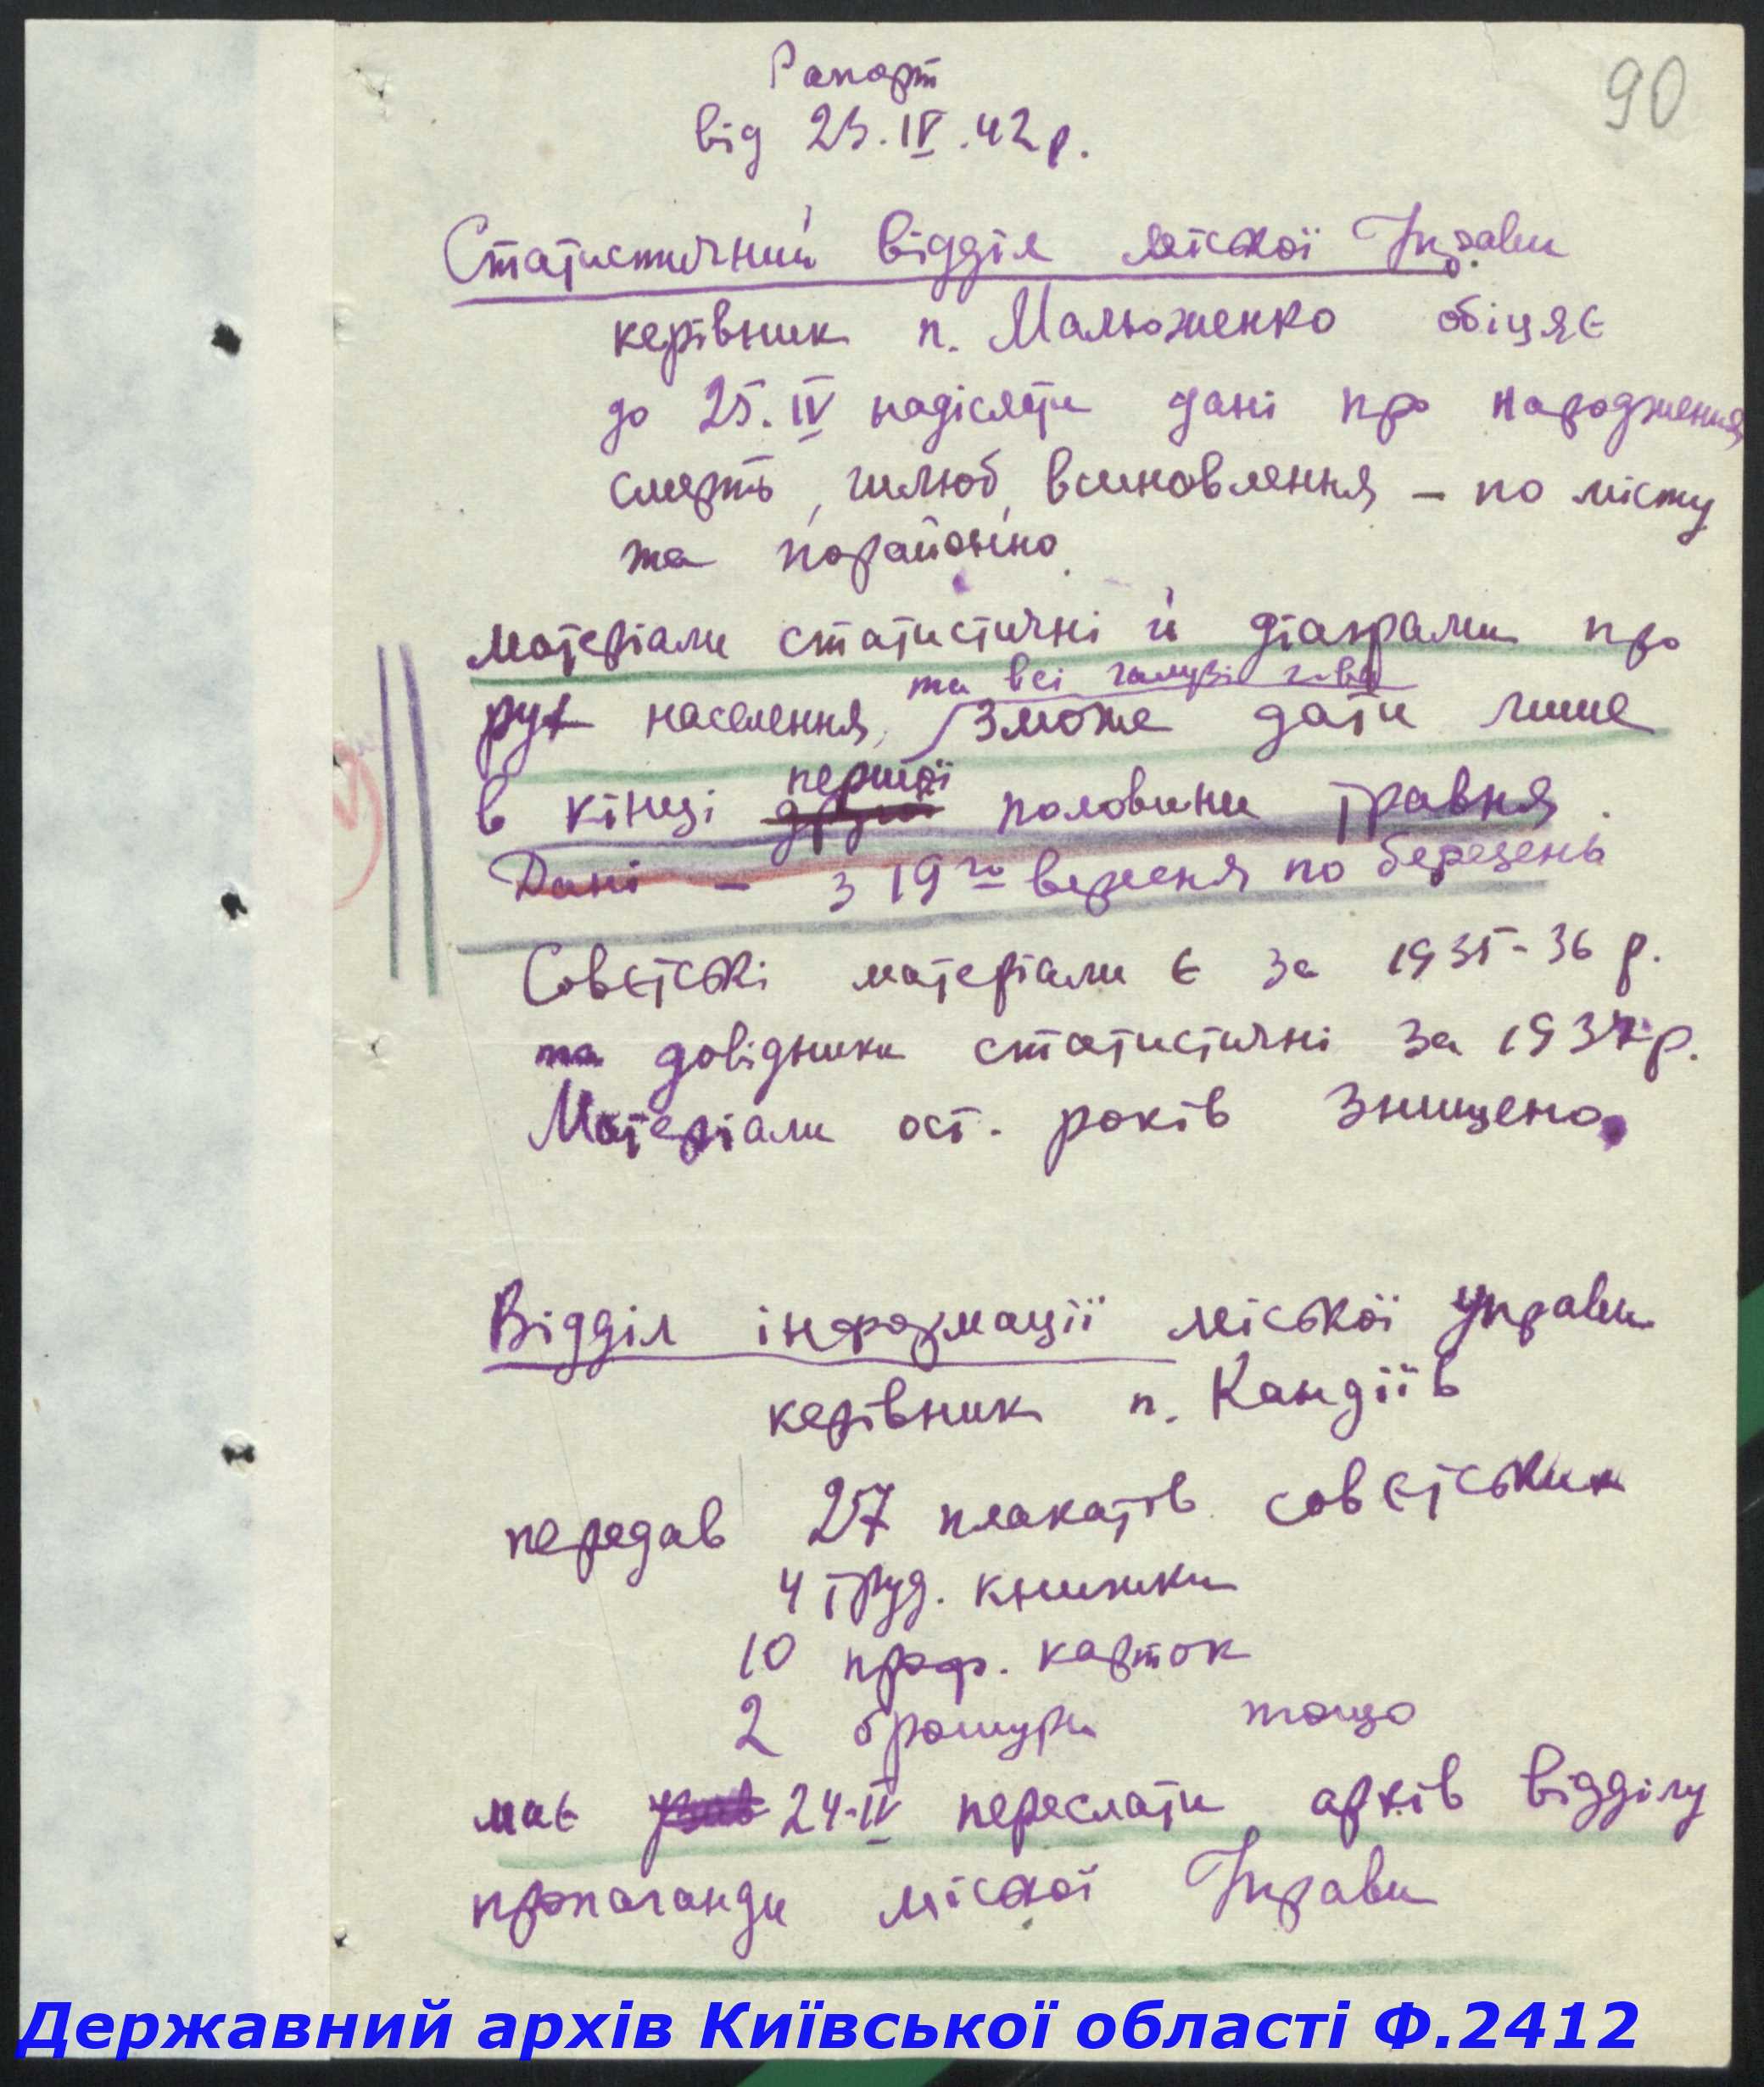 90
Рапорт
від 23.IV.42 р.
Статистичний відділ міської Управи
керівник п. Мальоженко обіцяє
до 25.IV надіслати дані про народження
смерть, шлюб, всиновлення – по місту
та порайонно.
Матеріали статистичні й діаграми про
та всі галузі
рух населення, зможе дати лише
першої
в кінці другої половини травня.
Дані – з 19го вересня по березень
Совєтські матеріали є за 1935-36 р.
та довідники статистичні за 1937 р.
Матеріали ост. років знищено.
Відділ інформації міської Управи
керівник п. Кандіїв
передав 257 плакатів совєтських
4 труд. книжки
10 проф. карток
2 брошури тощо
має 24-IV переслати архів відділу
пропаганди міської Управи
Державний архів Київської області Ф.2412